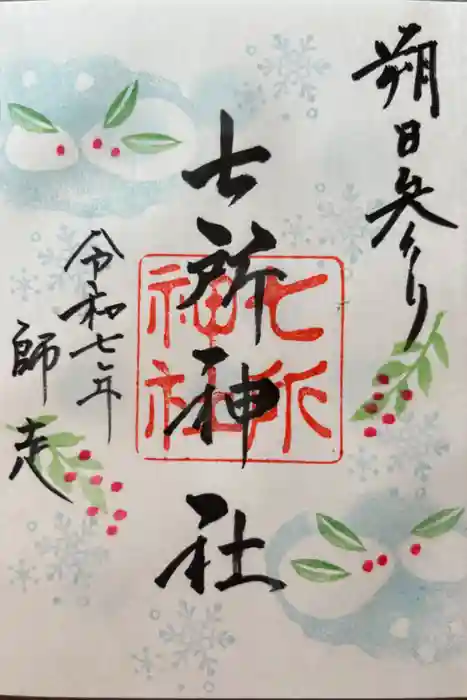 朔日参り
七所神社
七所神社
令和七年
師走